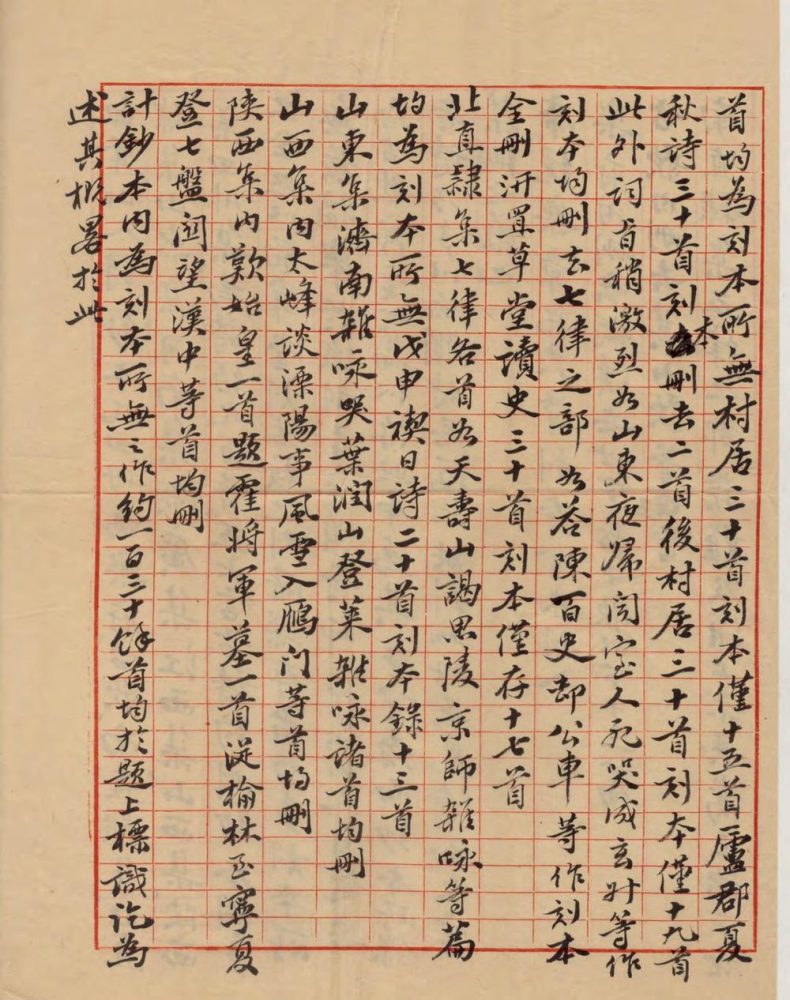 首均為刻本所無村居三十首刻本僅十五首廬郡夏
秋詩三十首刻本刪去二首後村居三十首刻本僅十九首
此外詞旨稍激烈如山東夜歸闻室人死哭成玄升等作
刻本均刪去七律之部如答陳百史却公車等作刻本
全刪汧罝草堂讀史三十首刻本僅存十七首
北直隸集七律各首如天壽山謁思陵京師雜咏等篇
均為刻本所無戊申禊日詩二十首刻本錄十三首
山東集濟南雜咏哭葉润山登萊雜咏諸首均刪
山西集内太峰談溧陽事風雪入鴈门等首均刪
陝西集内歎始皇一首題霍將軍墓一首從榆林至寧夏
登七盤闗望漢中等首均刪
計鈔本内為刻本所無之作約一百三十餘首均於題上標識訖為
述其概畧於此